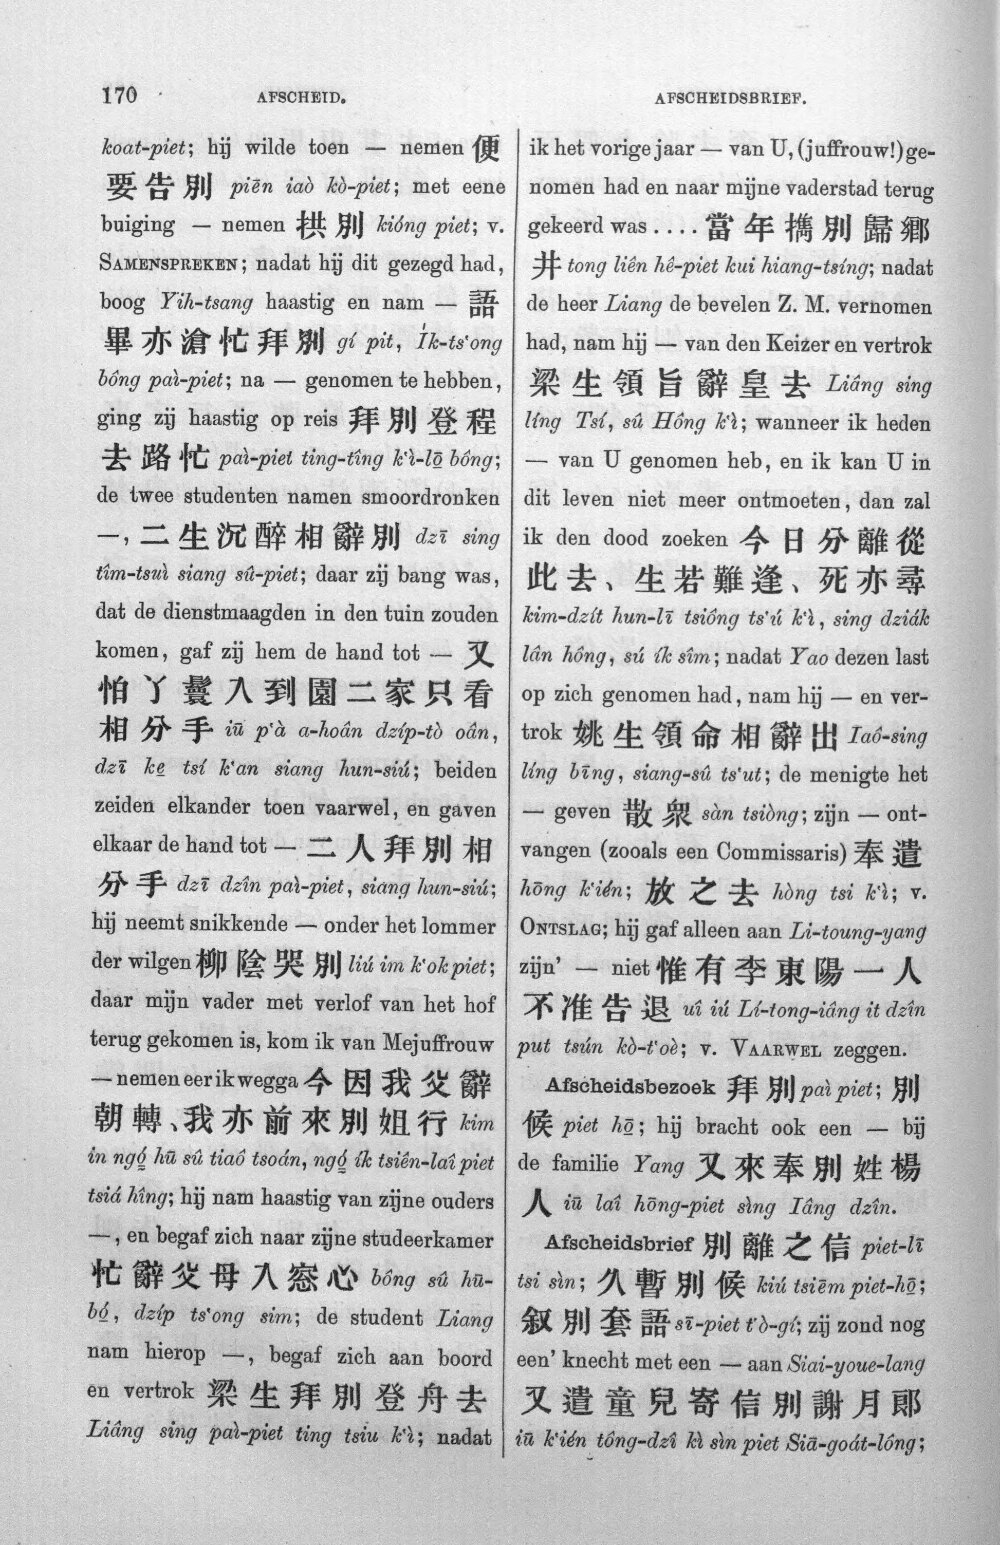 170
AFSCHEID.
AFSCHEIDSBRIEF.
koat-piet; hij wilde toen — nemen 便
要告別 piēn iaò kò-piet; met eene
buiging — nemen 拱別 kióng piet; v.
SAMENSPREKEN; nadat hij dit gezegd had,
boog Yih-tsang haastig en nam — 語
畢亦滄忙拜別 gí pit, Ík-ts‘ong
bông paì-piet; na — genomen te hebben,
ging zij haastig op reis 拜別登程
去路忙 paì-piet ting-tîng k‘ì-lō bông;
de twee studenten namen smoordronken
—, 二生沉醉相辭別 dzī sing
tîm-tsuì siang sû-piet; daar zij bang was,
dat de dienstmaagden in den tuin zouden
komen, gaf zij hem de hand tot — 又
怕丫鬟入到園二家只看
相分手 iū p‘à a-hoân dzíp-tò oân,
dzī ke tsí k‘an siang hun-siú; beiden
zeiden elkander toen vaarwel, en gaven
elkaar de hand tot — 二人拜別相
分手 dzī dzîn paì-piet, siang hun-siú;
hij neemt snikkende — onder het lommer
der wilgen 柳陰哭別 liú im k‘ok piet;
daar mijn vader met verlof van het hof
terug gekomen is, kom ik van Mejuffrouw
— nemen eer ik wegga 今因我父辭
朝轉、我亦前來別姐行 kim
in ngó hū sû tiaô tsoán, ngó ík tsiên-laî piet
tsiá hîng; hij nam haastig van zijne ouders
—, en begaf zich naar zijne studeerkamer
忙辭父母入窓心 bông sû hū-
bó, dzíp ts‘ong sim; de student Liang
nam hierop —, begaf zich aan boord
en vertrok 梁生拜別登舟去
Liâng sing paì-piet ting tsiu k‘ì; nadat
ik het vorige jaar — van U, (juffrouw!) ge-
nomen had en naar mijne vaderstad terug
gekeerd was .... 當年擕別歸鄉
井 tong liên hê-piet kui hiang-tsíng; nadat
de heer Liang de bevelen Z. M. vernomen
had, nam hij — van den Keizer en vertrok
梁生領旨辭皇去 Liâng sing
líng Tsí, sû Hông k‘ì; wanneer ik heden
— van U genomen heb, en ik kan U in
dit leven niet meer ontmoeten, dan zal
ik den dood zoeken 今日分離從
此去、生若難逢、死亦尋
kim-dzít hun-lī tsiông ts‘ú k‘ì, sing dziák
lân hông, sú ík sîm; nadat Yao dezen last
op zich genomen had, nam hij — en ver-
trok 姚生領命相辭出 Iaô-sing
líng bīng, siang-sû ts‘ut; de menigte het
— geven 散衆 sàn tsiòng; zijn — ont-
vangen (zooals een Commissaris) 奉遣
hōng k‘ién; 放之去 hòng tsi k‘ì; v.
ONTSLAG; hij gaf alleen aan Li-toung-yang
zijn’ — niet 惟有李東陽一人
不准告退 uî iú Lí-tong-iâng it dzîn
put tsún kò-t‘oè; v. VAARWEL zeggen.
Afscheidsbezoek 拜別 paì piet; 別
候 piet hō; hij bracht ook een — bij
de familie Yang 又來奉別姓楊
人 iū laî hōng-piet sìng Iâng dzîn.
Afscheidsbrief 別離之信 piet-lī
tsi sìn; 久暫別候 kiú tsiēm piet-hō;
叙別套語 sī-piet t‘ò-gí; zij zond nog
een’ knecht met een — aan Siai-youe-lang
又遣童兒寄信別謝月郎
iū k‘ién tông-dzî kì sìn piet Siā-goát-lông;